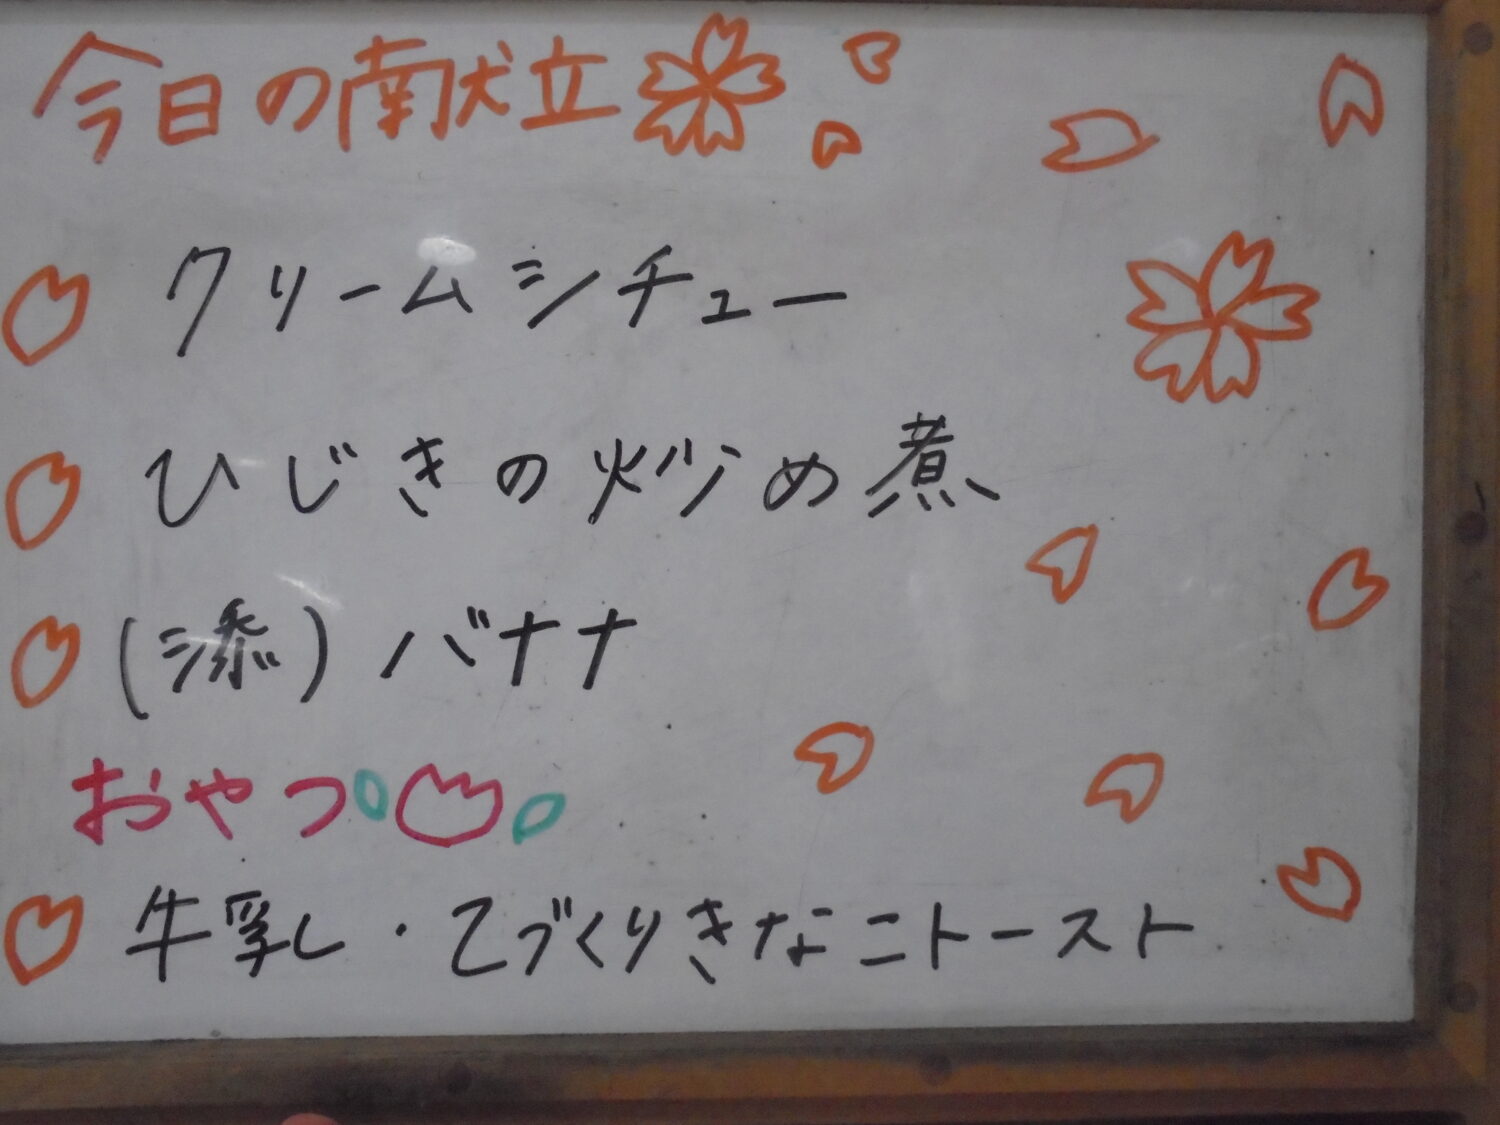 今日の献立
クリームシチュー
ひじきの炒め煮
(添)バナナ
おやつ
牛乳・てづくりきなこトースト